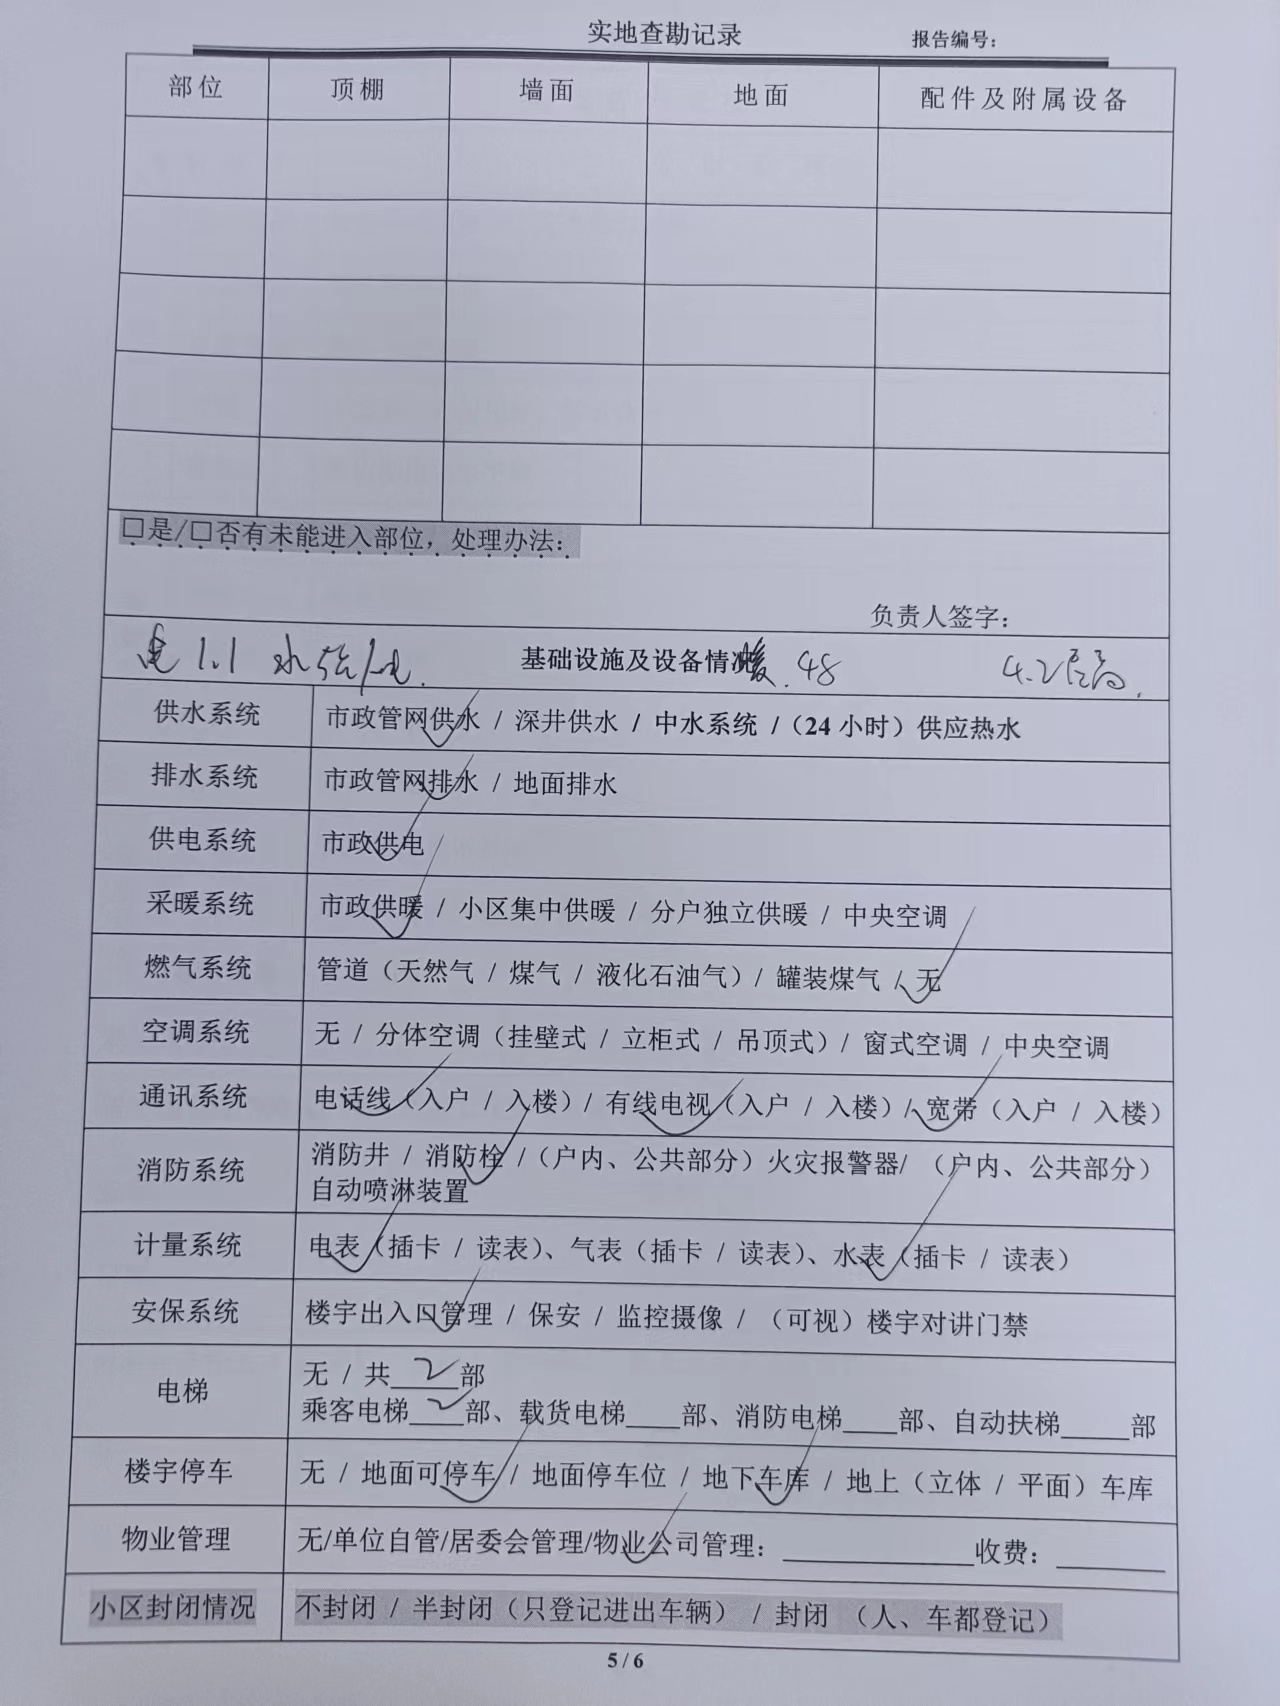 实地查勘记录
报告编号：
部位 顶棚 墙面 地面 配件及附属设备
□是/□否有未能进入部位，处理办法：
负责人签字：
电1.1 水 基础设施及设备情况 暖.48 4.2层高.
供水系统 市政管网供水 / 深井供水 / 中水系统 /（24 小时）供应热水
排水系统 市政管网排水 / 地面排水
供电系统 市政供电
采暖系统 市政供暖 / 小区集中供暖 / 分户独立供暖 / 中央空调
燃气系统 管道（天然气 / 煤气 / 液化石油气）/ 罐装煤气 / 无
空调系统 无 / 分体空调（挂壁式 / 立柜式 / 吊顶式）/ 窗式空调 / 中央空调
通讯系统 电话线（入户 / 入楼）/ 有线电视（入户 / 入楼）/ 宽带（入户 / 入楼）
消防系统 消防井 / 消防栓 /（户内、公共部分）火灾报警器/ （户内、公共部分）
自动喷淋装置
计量系统 电表（插卡 / 读表）、气表（插卡 / 读表）、水表（插卡 / 读表）
安保系统 楼宇出入口管理 / 保安 / 监控摄像 / （可视）楼宇对讲门禁
电梯 无 / 共2部
乘客电梯2部、载货电梯____部、消防电梯____部、自动扶梯_____部
楼宇停车 无 / 地面可停车 / 地面停车位 / 地下车库 / 地上（立体 / 平面）车库
物业管理 无/单位自管/居委会管理/物业公司管理：______________收费：________
小区封闭情况 不封闭 / 半封闭（只登记进出车辆） / 封闭 （人、车都登记）
5 / 6